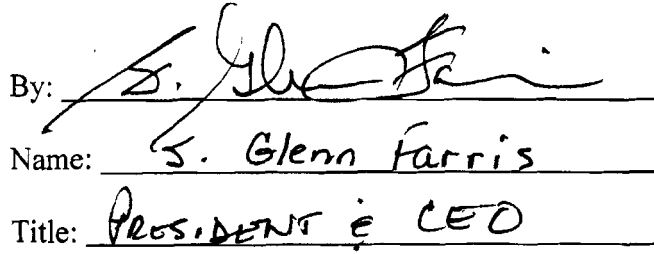 By: J. Glenn Farris
Name: J. Glenn Farris
Title: PRESIDENT & CEO